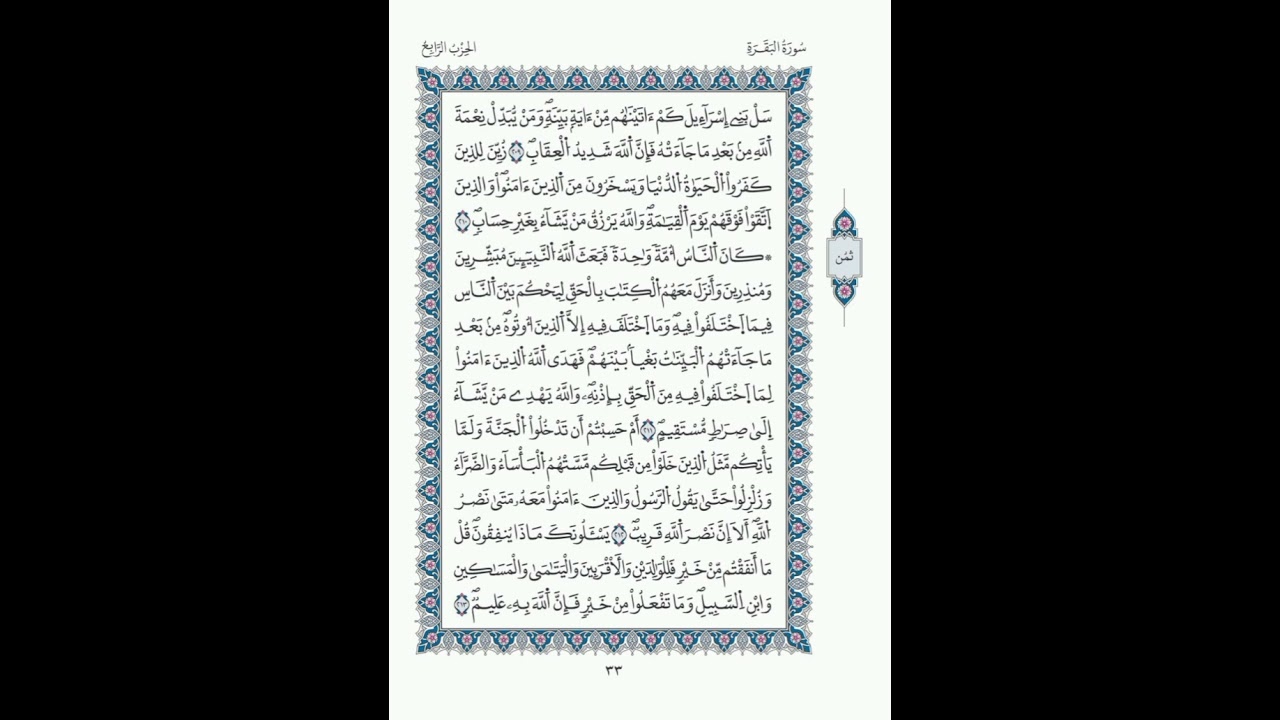 سُورَةُ البَقَرَةِ
الحِزْبُ الرَّابِعُ
سَلْ بَنِے إِسْرَآءِيلَ كَمَ ءَاتَيْنَٰهُم مِّنَ ءَايَةِۢ بَيِّنَةٖۖ وَمَنْ يُّبَدِّلْ نِعْمَةَ
اَ۬للَّهِ مِنۢ بَعْدِ مَا جَآءَتْهُ فَإِنَّ اَ۬للَّهَ شَدِيدُ اُ۬لْعِقَابِۖ ٢٠٩ زُيِّنَ لِلذِينَ
كَفَرُواْ اُ۬لْحَيَوٰةُ اُ۬لدُّنْي۪ا وَيَسْخَرُونَ مِنَ اَ۬لذِينَ ءَامَنُواْۖ وَالذِينَ
اَ۪تَّقَوْاْ فَوْقَهُمْ يَوْمَ اَ۬لْقِيَٰمَةِۖ وَاللَّهُ يَرْزُقُ مَنْ يَّشَآءُ بِغَيْرِ حِسَابٖۖ ٢١٠
۞ كَانَ اَ۬لنَّاسُ أُمَّةٗ وَٰحِدَةٗ فَبَعَثَ اَ۬للَّهُ اُ۬لنَّبِيٓـِٕينَ مُبَشِّرِينَ
وَمُنذِرِينَ وَأَنزَلَ مَعَهُمُ اُ۬لْكِتَٰبَ بِالْحَقِّ لِيَحْكُمَ بَيْنَ اَ۬لنَّاسِ
فِيمَا اَ۪خْتَلَفُواْ فِيهِۖ وَمَا اَ۪خْتَلَفَ فِيهِ إِلَّا اَ۬لذِينَ أُوتُوهُ مِنۢ بَعْدِ
مَا جَآءَتْهُمُ اُ۬لْبَيِّنَٰتُ بَغْياَۢ بَيْنَهُمْۖ فَهَدَى اَ۬للَّهُ اُ۬لذِينَ ءَامَنُواْ
لِمَا اَ۪خْتَلَفُواْ فِيهِ مِنَ اَ۬لْحَقِّ بِإِذْنِهِۦۖ وَاللَّهُ يَهْدِے مَنْ يَّشَآءُ
إِلَىٰ صِرَٰطٖ مُّسْتَقِيمٍۖ ٢١١ أَمْ حَسِبْتُمْ أَن تَدْخُلُواْ اُ۬لْجَنَّةَ وَلَمَّا
يَأْتِكُم مَّثَلُ اُ۬لذِينَ خَلَوْاْ مِن قَبْلِكُم مَّسَّتْهُمُ اُ۬لْبَأْسَآءُ وَالضَّرَّآءُ
وَزُلْزِلُواْ حَتَّىٰ يَقُولُ اُ۬لرَّسُولُ وَالذِينَ ءَامَنُواْ مَعَهُۥ مَتَىٰ نَصْرُ
اُ۬للَّهِۖ أَلَآ إِنَّ نَصْرَ اَ۬للَّهِ قَرِيبٞۖ ٢١٢ يَسْـَٔلُونَكَ مَاذَا يُنفِقُونَۖ قُلْ
مَا أَنفَقْتُم مِّنْ خَيْرٖ فَلِلْوَٰلِدَيْنِ وَالْأَقْرَبِينَ وَالْيَتَٰمَىٰ وَالْمَسَٰكِينِ
وَابْنِ اِ۬لسَّبِيلِۖ وَمَا تَفْعَلُواْ مِنْ خَيْرٖ فَإِنَّ اَ۬للَّهَ بِهِۦ عَلِيمٞۖ ٢١٣
ثُمُن
٣٣